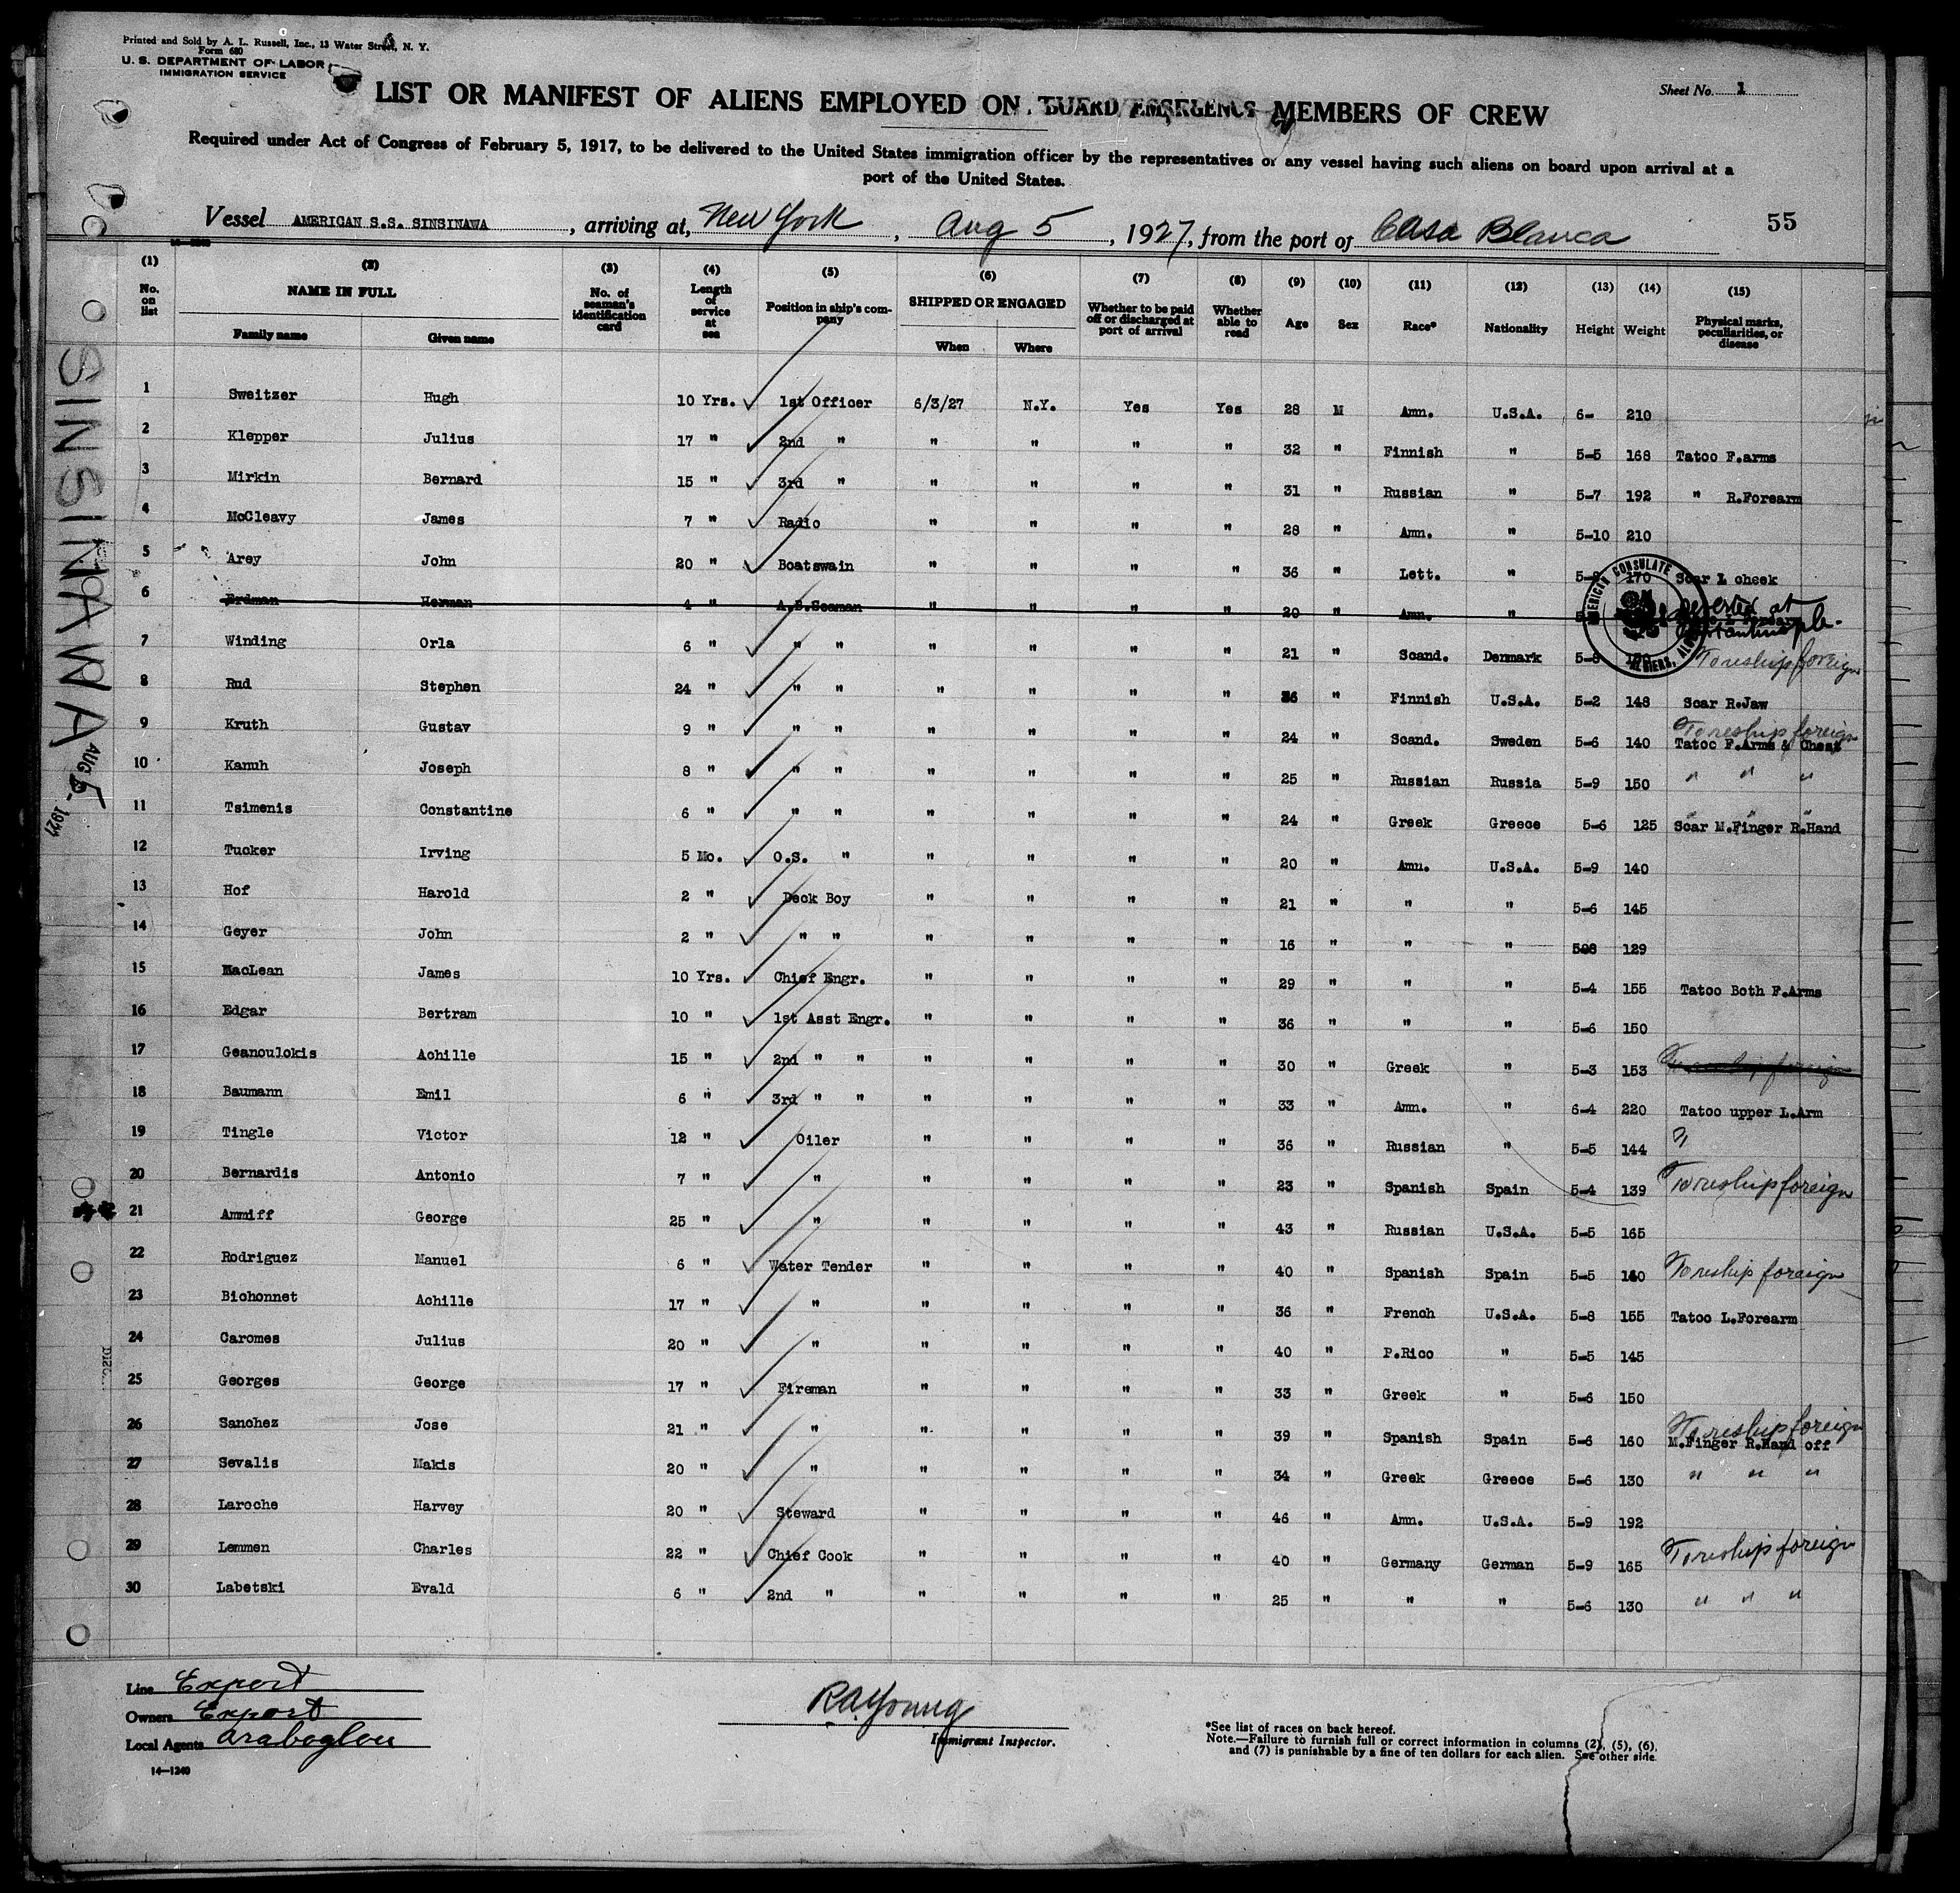 Printed and Sold by A. L. Russell, Inc., 13 Water Street, N. Y.
Form 680
U. S. DEPARTMENT OF LABOR
IMMIGRATION SERVICE
Sheet No. 1
LIST OR MANIFEST OF ALIENS EMPLOYED ON MEMBERS OF CREW
Required under Act of Congress of February 5, 1917, to be delivered to the United States immigration officer by the representatives of any vessel having such aliens on board upon arrival at a
port of the United States.
Vessel AMERICAN S.S. SINSINAWA, arriving at, New York, Aug 5, 1927, from the port of Casa Blanca 55
(1) (2) (3) (4) (5) (6) (7) (8) (9) (10) (11) (12) (13) (14) (15)
No. on list NAME IN FULL Family name Given name No. of seaman's identification card Length of service at sea Position in ship's company SHIPPED OR ENGAGED When Where Whether to be paid off or discharged at port of arrival Whether able to read Age Sex Race* Nationality Height Weight Physical marks, peculiarities, or disease
1 Sweitzer Hugh 10 Yrs. 1st Officer 6/3/27 N.Y. Yes Yes 28 M Amn. U.S.A. 6- 210
2 Klepper Julius 17 " 2nd " " " " " 32 " Finnish " 5-5 168 Tatoo F.arms
3 Mirkin Bernard 15 " 3rd " " " " " 31 " Russian " 5-7 192 " R.Forearm
4 McCleavy James 7 " Radio " " " " 28 " Amn. " 5-10 210
5 Arey John 20 " Boatswain " " " " 36 " Lett. " 170 Scar L cheek
6 Erdman Herman 4 " A.B.Seaman " " " " 20 " Amn. " Deserted at
7 Winding Orla 6 " " " " " " " 21 " Scand. Denmark 5-8 To reship foreign
8 Rud Stephen 24 " " " " " " " 36 " Finnish U.S.A. 5-2 148 Scar R.Jaw
9 Kruth Gustav 9 " " " " " " " 24 " Scand. Sweden 5-6 140 To reship foreign Tatoo F.Arms & Chest
10 Kanuh Joseph 8 " " " " " " " 25 " Russian Russia 5-9 150 " " "
11 Tsimenis Constantine 6 " " " " " " " 24 " Greek Greece 5-6 125 Scar M.Finger R.Hand
12 Tucker Irving 5 Mo. O.S. " " " " " 20 " Amn. U.S.A. 5-9 140
13 Hof Harold 2 " Deck Boy " " " " 21 " " " 5-6 145
14 Geyer John 2 " " " " " " " 16 " " " 129
15 MacLean James 10 Yrs. Chief Engr. " " " " 29 " " " 5-4 155 Tatoo Both F.Arms
16 Edgar Bertram 10 " 1st Asst Engr. " " " " 36 " " " 5-6 150
17 Geanoulokis Achille 15 " 2nd " " " " " " 30 " Greek " 5-3 153
18 Baumann Emil 6 " 3rd " " " " " " 33 " Amn. " 6-4 220 Tatoo upper L.Arm
19 Tingle Victor 12 " Oiler " " " " 36 " Russian " 5-5 144 "
20 Bernardis Antonio 7 " " " " " " 23 " Spanish Spain 5-4 139 To reship foreign
21 Ammiff George 25 " " " " " " 43 " Russian U.S.A. 5-5 165
22 Rodriguez Manuel 6 " Water Tender " " " " 40 " Spanish Spain 5-5 To reship foreign
23 Bichonnet Achille 17 " " " " " " 36 " French U.S.A. 5-8 155 Tatoo L.Forearm
24 Caromes Julius 20 " " " " " " 40 " P.Rico " 5-5 145
25 Georges George 17 " Fireman " " " " 33 " Greek " 5-6 150
26 Sanchez Jose 21 " " " " " " 39 " Spanish Spain 5-6 160 To reship foreign M.Finger R.Hand off
27 Sevalis Makis 20 " " " " " " 34 " Greek Greece 5-6 130 " " "
28 Laroche Harvey 20 " Steward " " " " 46 " Amn. U.S.A. 5-9 192
29 Lemmen Charles 22 " Chief Cook " " " " 40 " Germany German 5-9 165 To reship foreign
30 Labetski Evald 6 " 2nd " " " " " 25 " " " 5-6 130 " " "
AMERICAN CONSULATE
ALGIERS,
SINSINAWA
AUG 5 - 1927
Line Export
Owners Export
Local Agents Araboglou
14—1240
RA Young
Immigrant Inspector.
*See list of races on back hereof.
Note.—Failure to furnish full or correct information in columns (2), (5), (6),
and (7) is punishable by a fine of ten dollars for each alien. See other side.